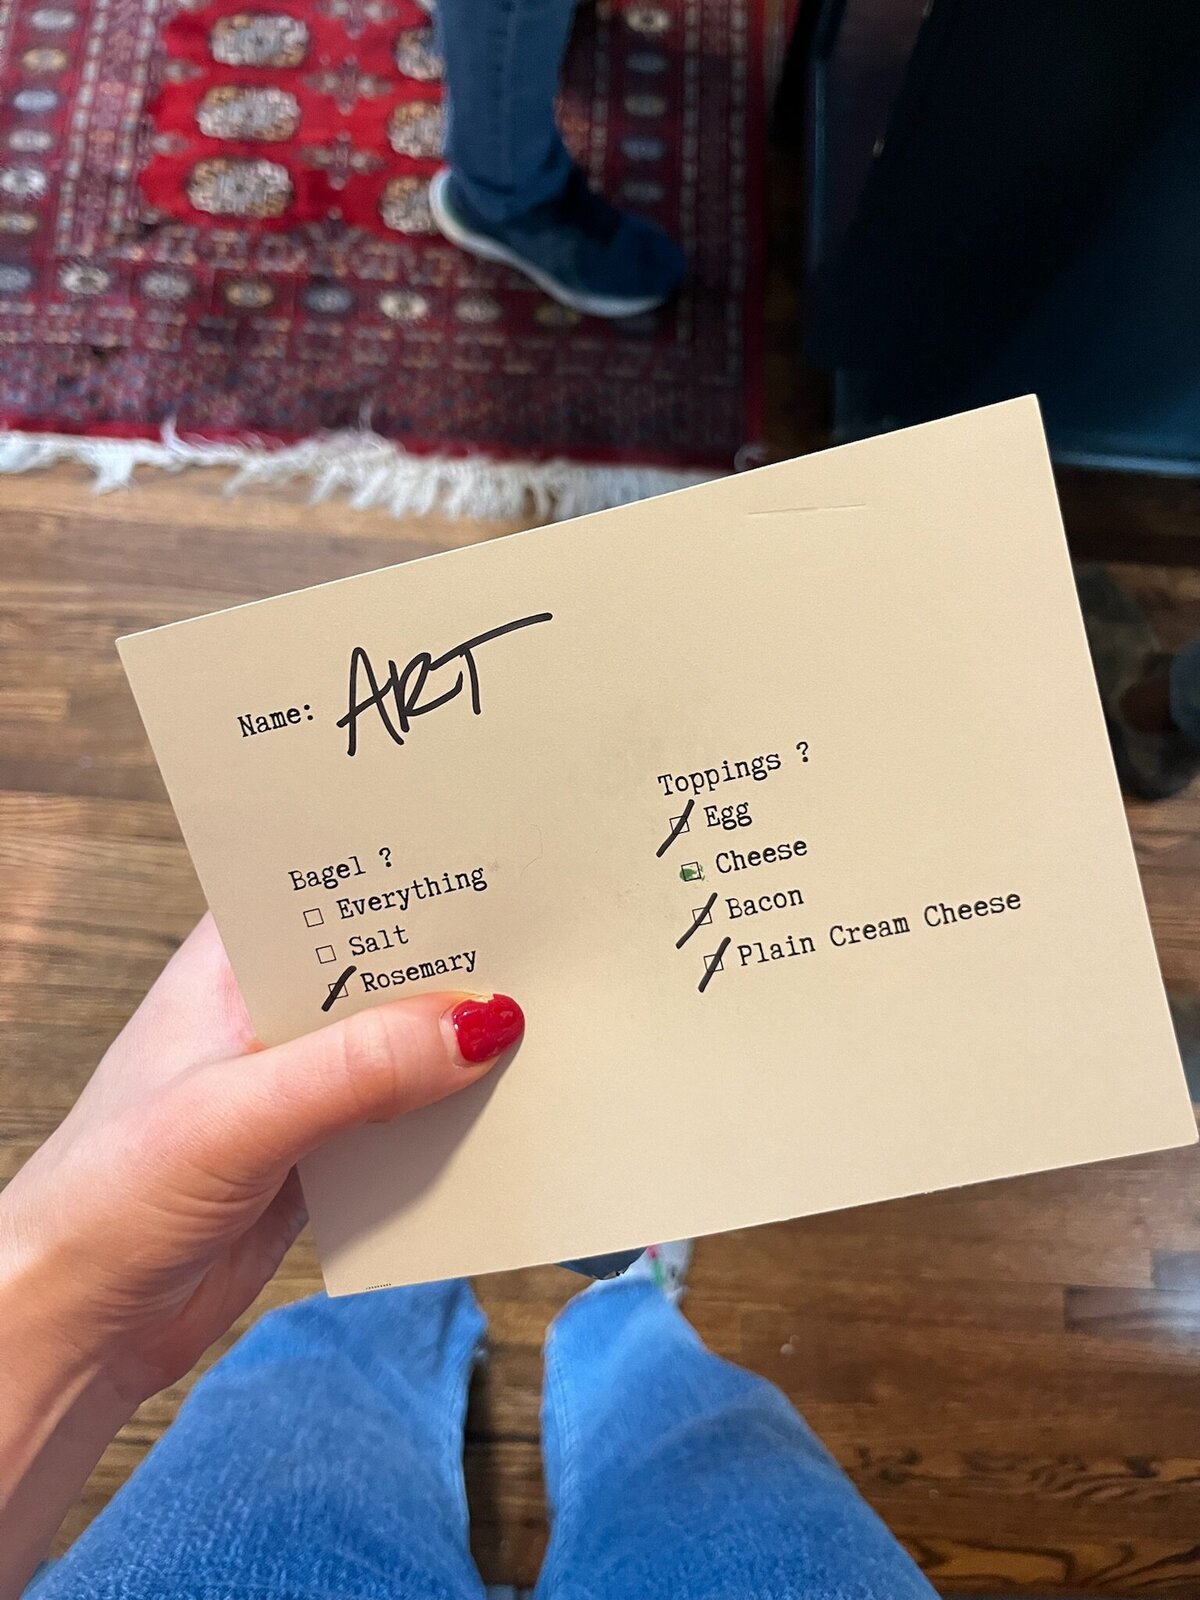 Name: ART
Bagel ?
Everything
Salt
Rosemary
Toppings ?
Egg
Cheese
Bacon
Plain Cream Cheese